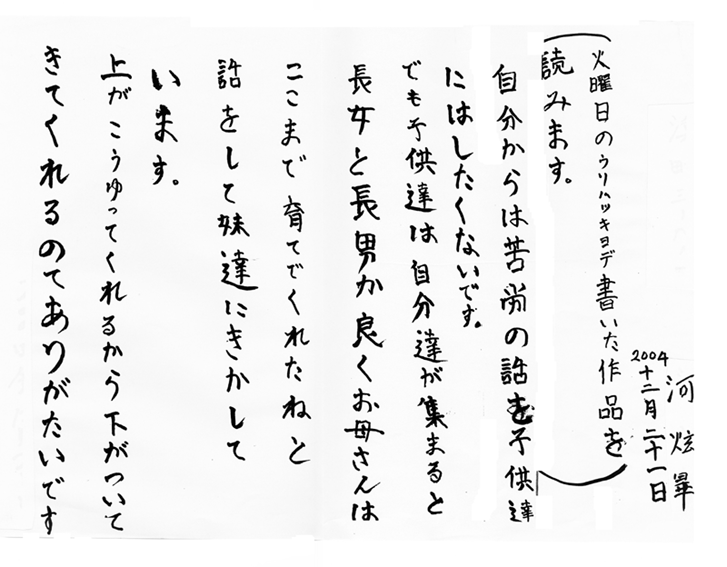 河炫畢
2004
十二月二十一日
(火曜日のウリハッキヨデ書いた作品を
読みます。)
自分からは苦労の話を子供達
にはしたくないです。
でも子供達は自分達が集まると
長女と長男か良くお母さんは
ここまで育てでくれたねと
話をして妹達にきかして
います。
上がこうゆってくれるから下がついて
きてくれるのてありがたいです